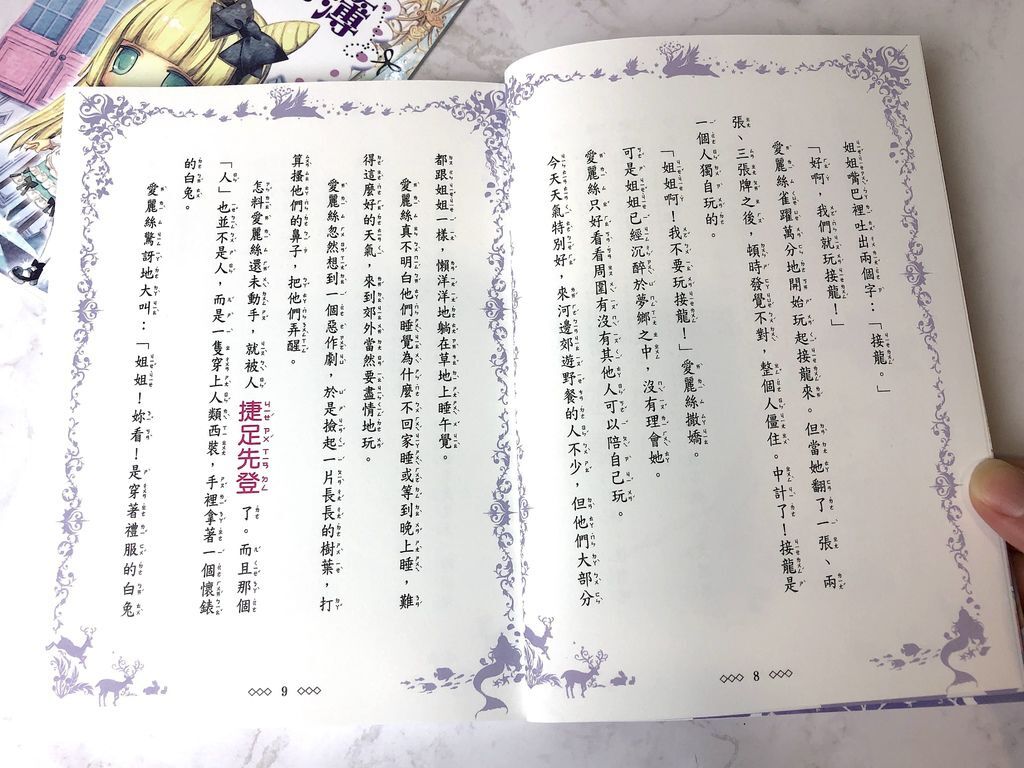 姐姐嘴巴裡吐出兩個字：「接龍。」
「好啊，我們就玩接龍！」
愛麗絲雀躍萬分地開始玩起接龍來。但當她翻了一張、兩
張、三張牌之後，頓時發覺不對，整個人僵住。中計了！接龍是
一個人獨自玩的。
「姐姐啊！我不要玩接龍！」愛麗絲撒嬌。
可是姐姐已經沉醉於夢鄉之中，沒有理會她。
愛麗絲只好看看周圍有沒有其他人可以陪自己玩。
今天天氣特別好，來河邊郊遊野餐的人不少，但他們大部分
8
都跟姐姐一樣，懶洋洋地躺在草地上睡午覺。
愛麗絲真不明白他們睡覺為什麼不回家睡或等到晚上睡，難
得這麼好的天氣，來到郊外當然要盡情地玩。
愛麗絲忽然想到一個惡作劇，於是撿起一片長長的樹葉，打
算搔他們的鼻子，把他們弄醒。
怎料愛麗絲還未動手，就被人捷足先登了。而且那個
「人」也並不是人，而是一隻穿上人類西裝，手裡拿著一個懷錶
的白兔。
愛麗絲驚訝地大叫：「姐姐！妳看！是穿著禮服的白兔
9
簿